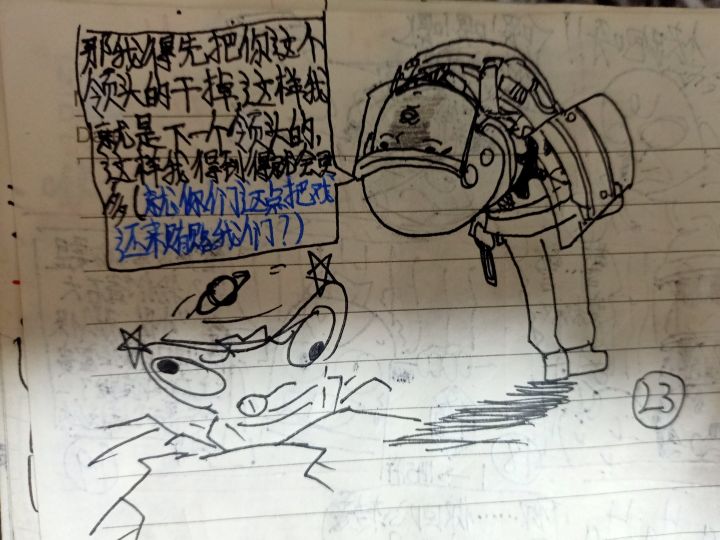 那我得先把你这个
领头的干掉,这样我
就是下一个领头的,
这样我得到得就会更
多(就你们这点把戏
还来贿赂我们?)
23